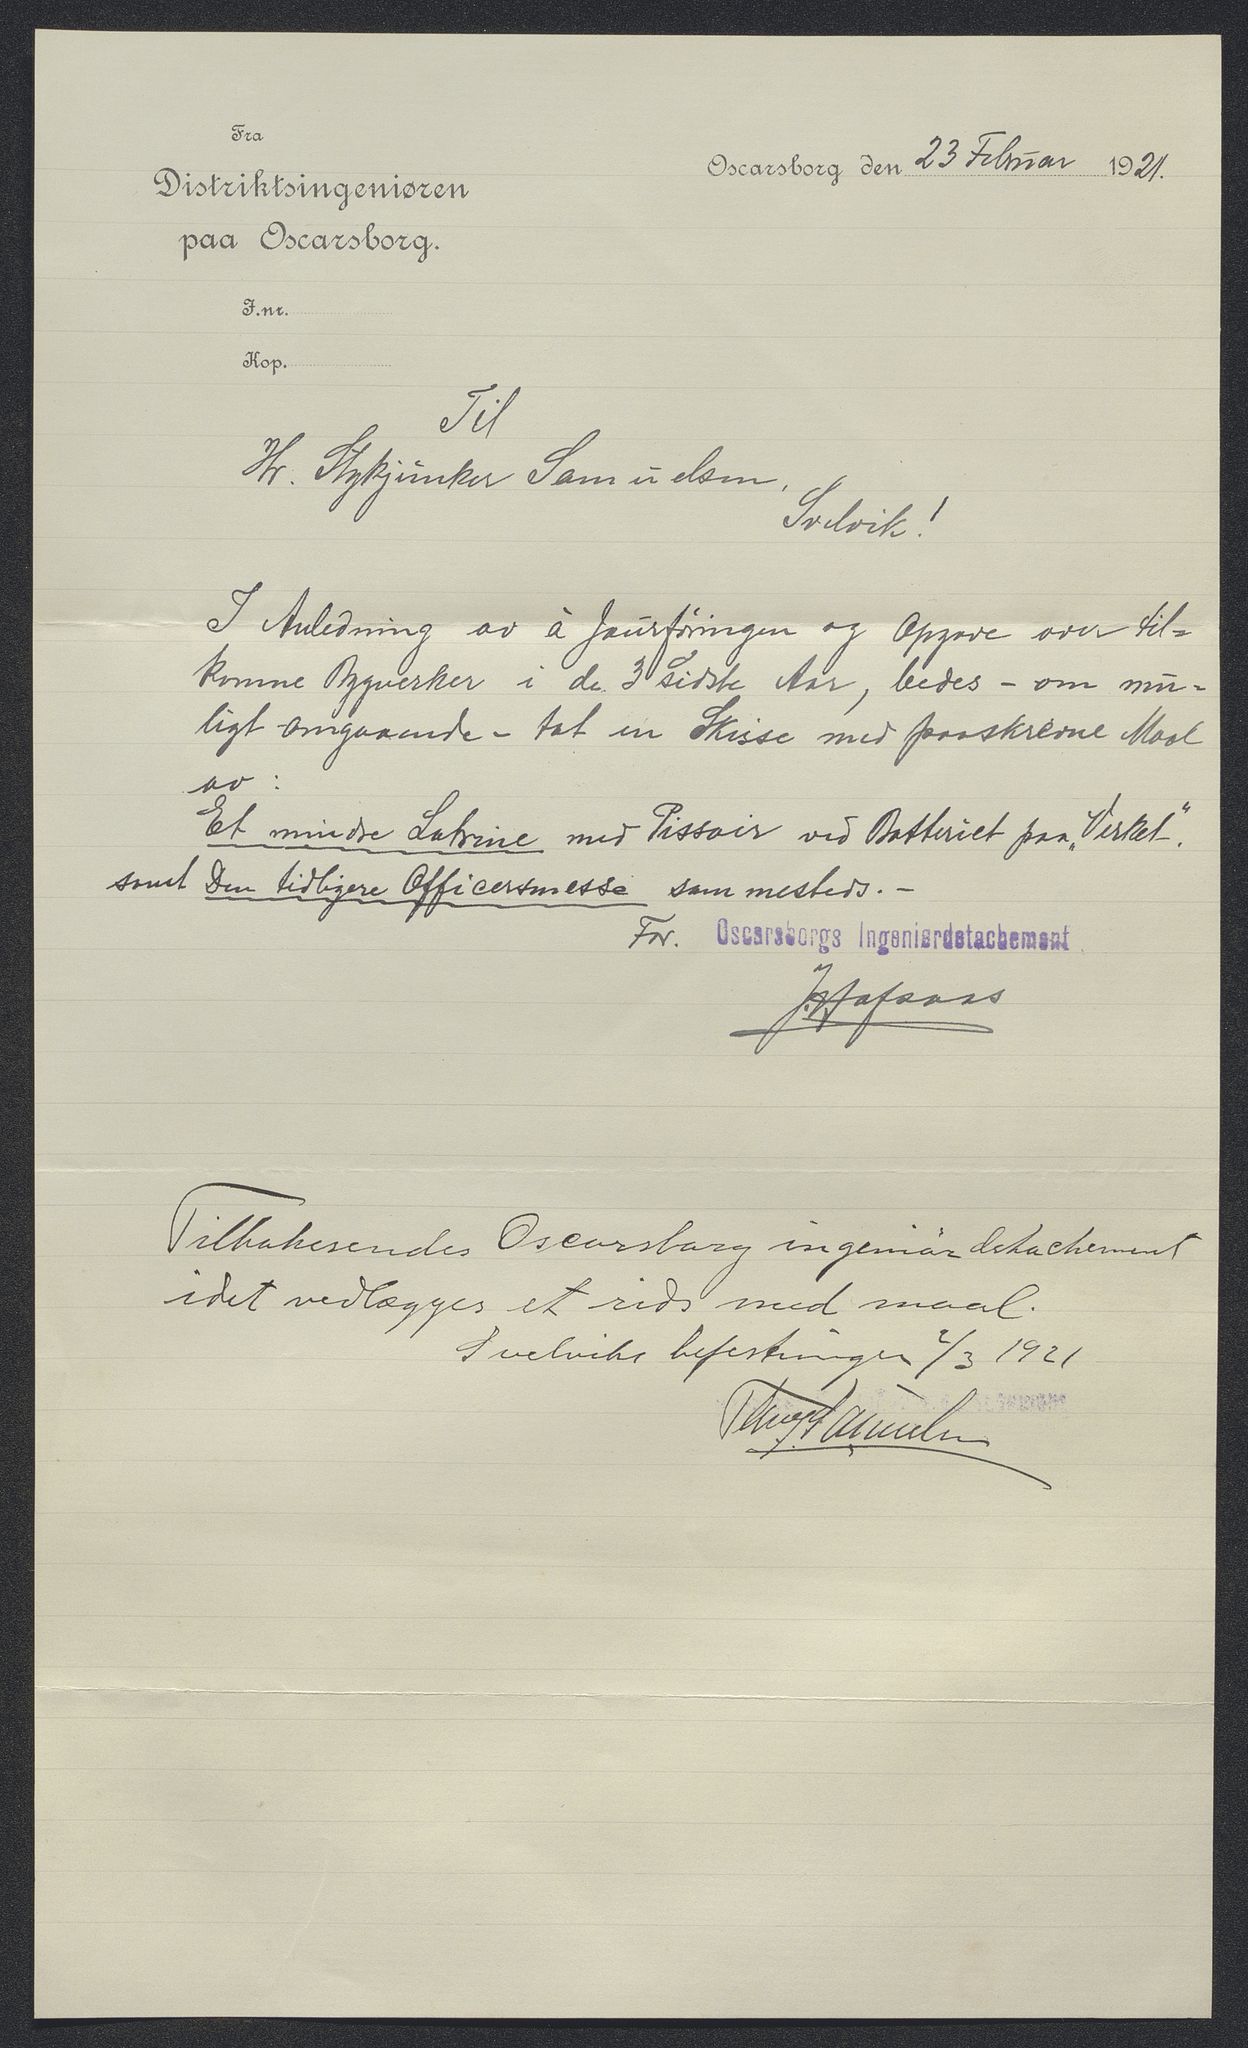 Fra
Distriktsingeniøren
paa Oscarsborg.
Oscarsborg den 23 Februar 1921.
J.nr.
Kop.
Til
Hr. Stykjunker Samuelsen,
Svelvik!
I Anledning av à Jourføringen og Opgave over til=
komne Bygverker i de 3 sidste Aar, bedes - om mu=
ligt omgaaende - tat en Skisse med paaskrevne Maal
av:
Et mindre Latrine med Pissoir ved Batteriet paa „Verket".
samt Den tidligere Officersmesse sammesteds. -
For. Oscarsborgs Ingeniørdetachement
J. Hafsaas
Tilbakesendes Oscarsborg ingeniördetachement
idet vedlægges et rids med maal.
Svelviks befestninger 2/3 1921
Samuelsen